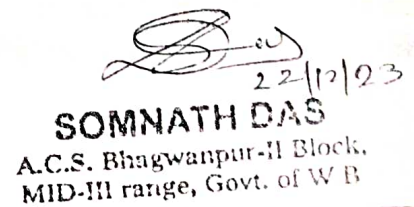 22/12/23
SOMNATH DAS
A.C.S. Bhagwanpur-II Block,
MID-III range, Govt. of W B